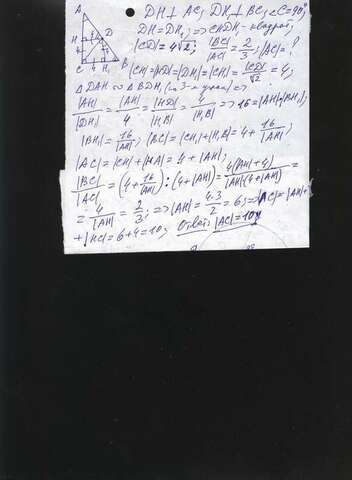 A
DH⊥AC, DK⊥BC, ∠C=90°,
DH=DK, ⇒ CHDK₁-квадрат,
|CD|=4√2; |BC|/|AC| = 2/3, |AC|=?
H D
C 4 H₁ B
|CH|=|HD|=|DH₁|=|CH₁|=|CD|/√2=4;
△DAH ∾ △BDH₁ (по 3-м углам) ⇒
|AH|/|DH₁| = |AH|/4 = |HD|/|H₁B| = 4/|H₁B| ⇒ 16=|AH||BH₁|,
|BH₁|=16/|AH|, |BC|=|CH₁|+|H₁B|=4+16/|AH|,
|AC|=|CH|+|HA|=4+|AH|,
|BC|/|AC| = (4+16/|AH|):(4+|AH|)=4(|AH|+4)/|AH|(4+|AH|)=
=4/|AH|=2/3, ⇒|AH|=4·3/2=6, ⇒|AC|=|AH|+
+|HC|=6+4=10, Ответ: |AC|=10